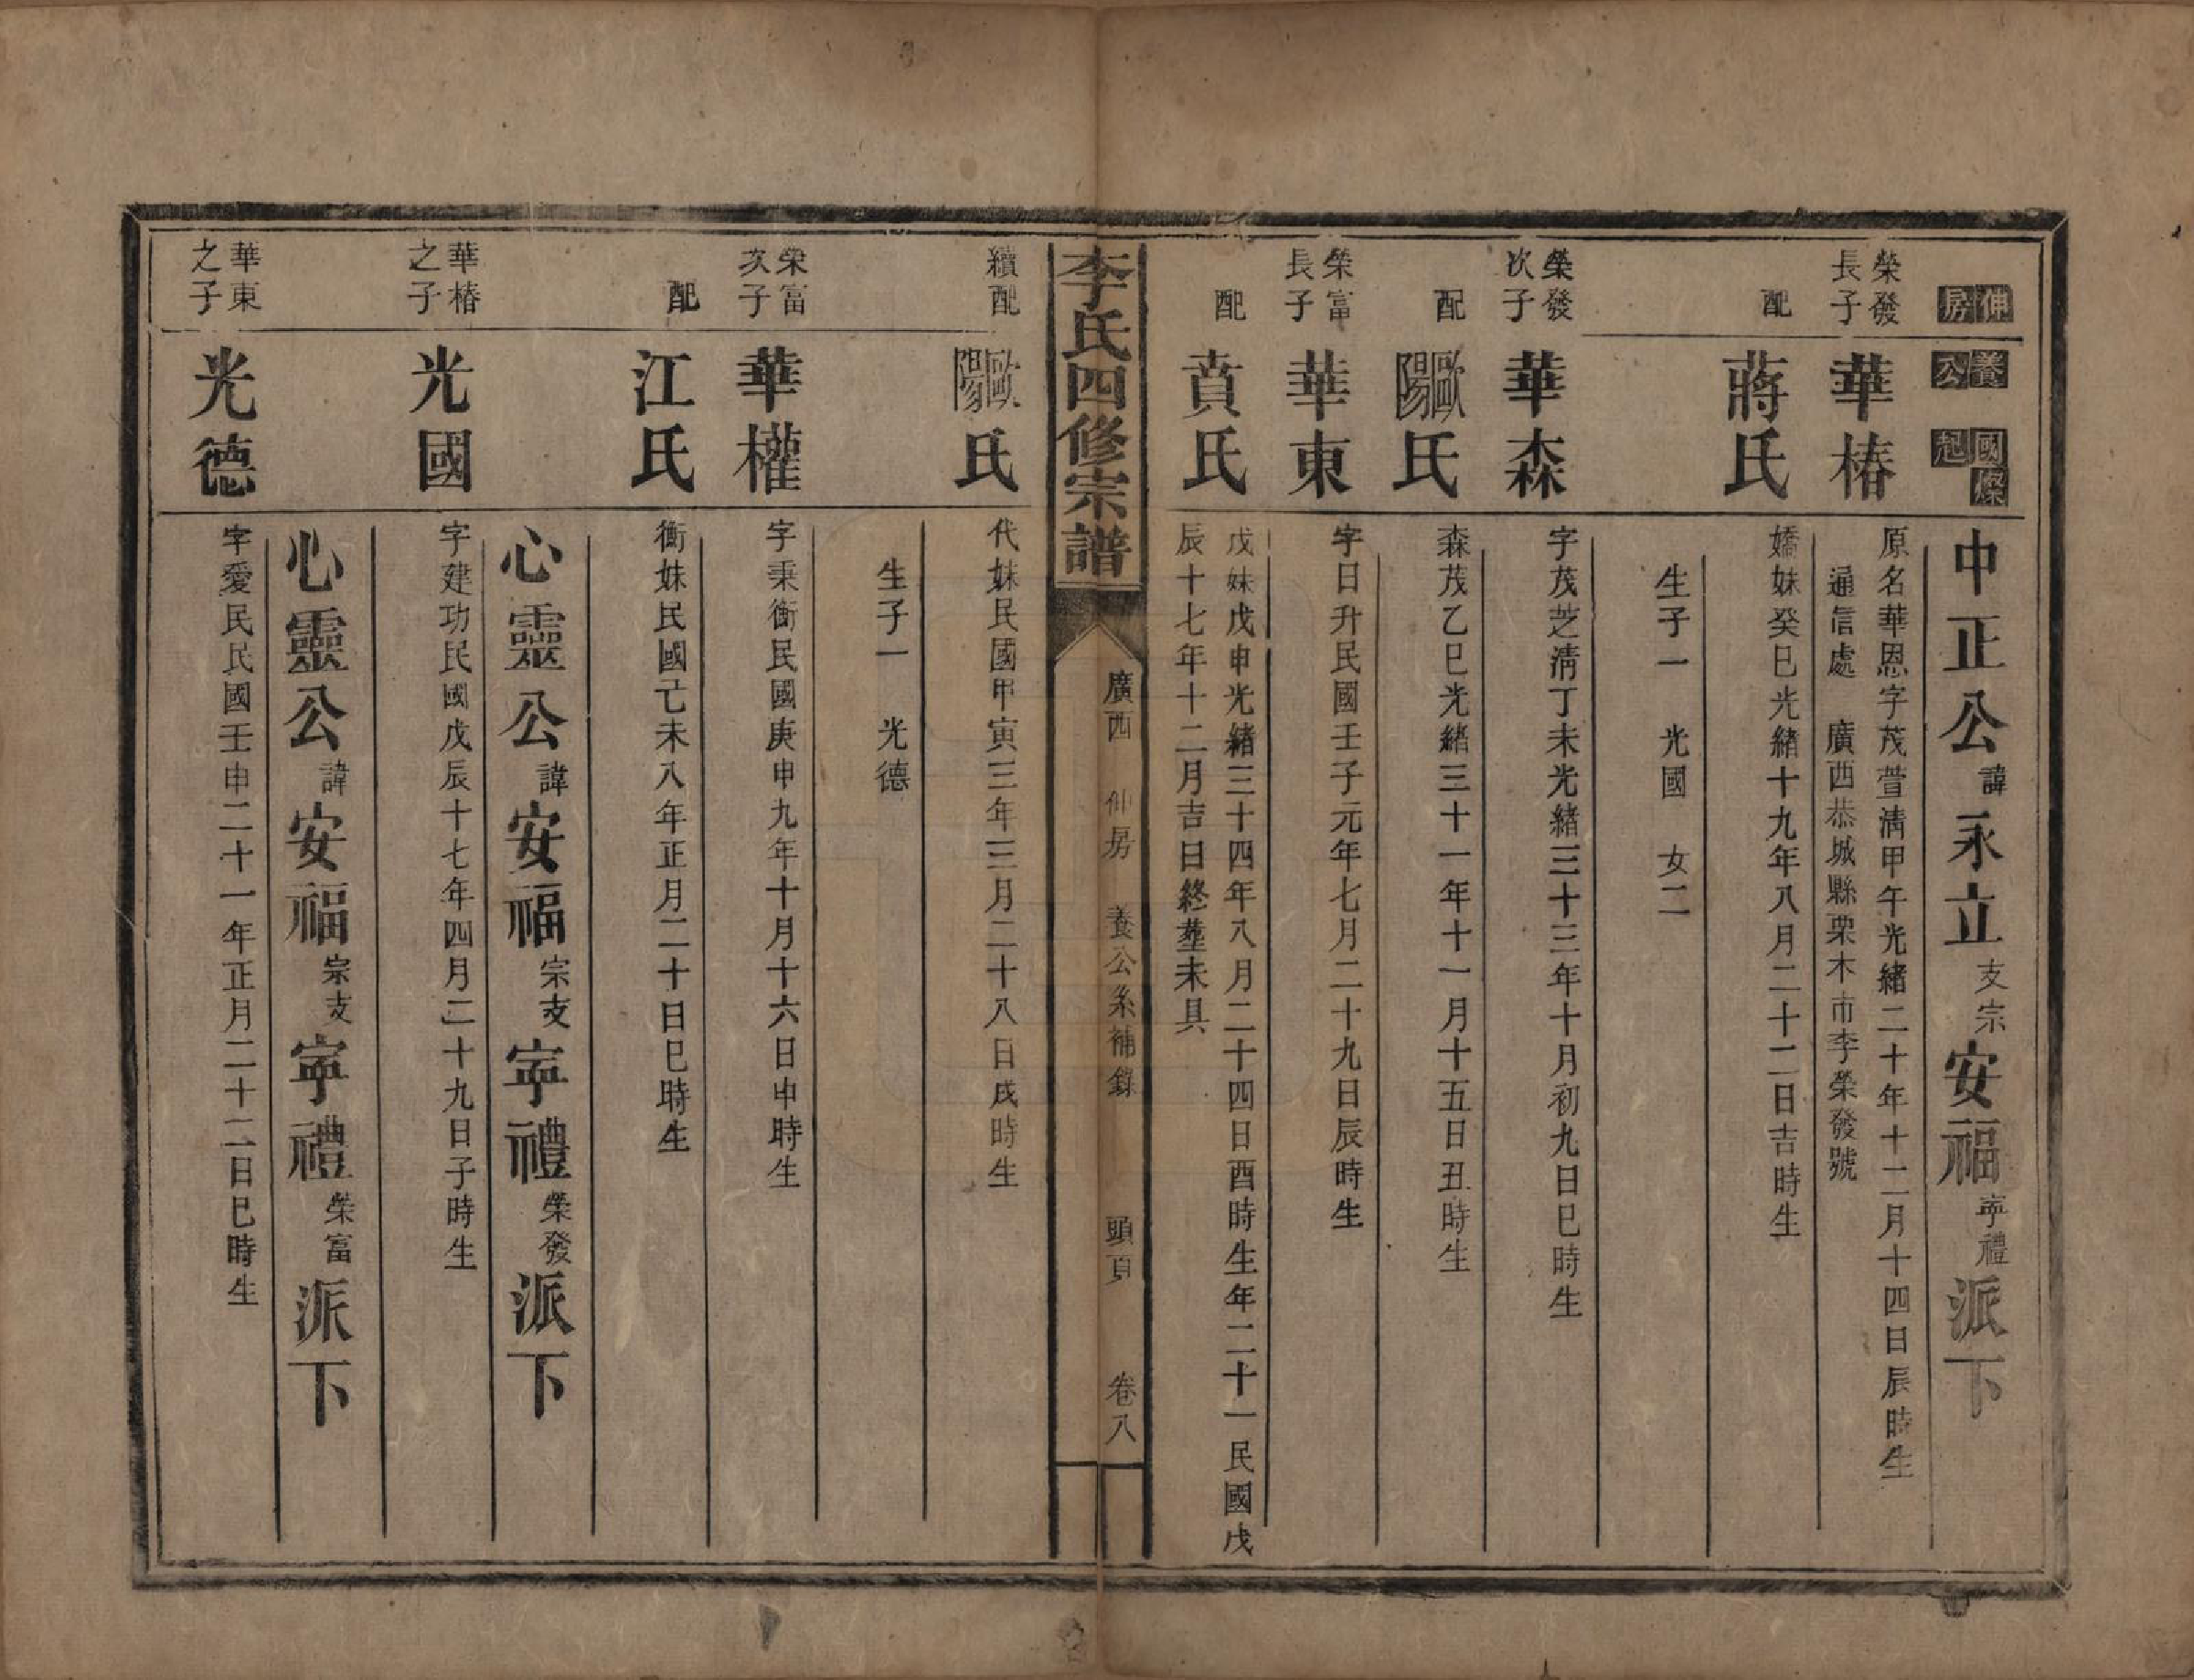 伸房 養公 國燦起 中正公諱永立支宗安福寧禮派下
榮發長子 華椿 原名華恩字茂萱清甲午光緒二十年十二月十四日辰時生
通信處 廣西恭城縣栗木市李榮發號
配 蔣氏 嬌妹癸巳光緒十九年八月二十二日吉時生
生子一 光國 女二
榮發次子 華森 字茂芝清丁未光緒三十三年十月初九日巳時生
配 歐陽氏 森茂乙巳光緒三十一年十一月十五日丑時生
榮富長子 華東 字日升民國壬子元年七月二十九日辰時生
配 賁氏 戊妹戊申光緒三十四年八月二十四日酉時生年二十一民國戊
辰十七年十二月吉日終塟未具
李氏四修宗譜 廣西 伸房 養公系補錄 頭頁 卷八
續配 歐陽氏 代妹民國甲寅三年三月二十八日戌時生
生子一 光德
榮富次子 華權 字秉衡民國庚申九年十月十六日申時生
配 江氏 衡妹民國己未八年正月二十日巳時生
心靈公諱安福宗支寧禮榮發派下
華椿之子 光國 字建功民國戊辰十七年四月二十九日子時生
心靈公諱安福宗支寧禮榮富派下
華東之子 光德 字愛民民國壬申二十一年正月二十二日巳時生